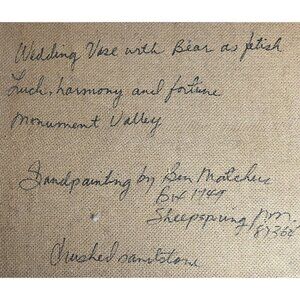 Wedding Vase with Bear as fetish
Luck, harmony and fortune
Monument Valley
Sandpainting by Ben
Box 1749
Sheepspring NM.
87364
Crushed sandstone